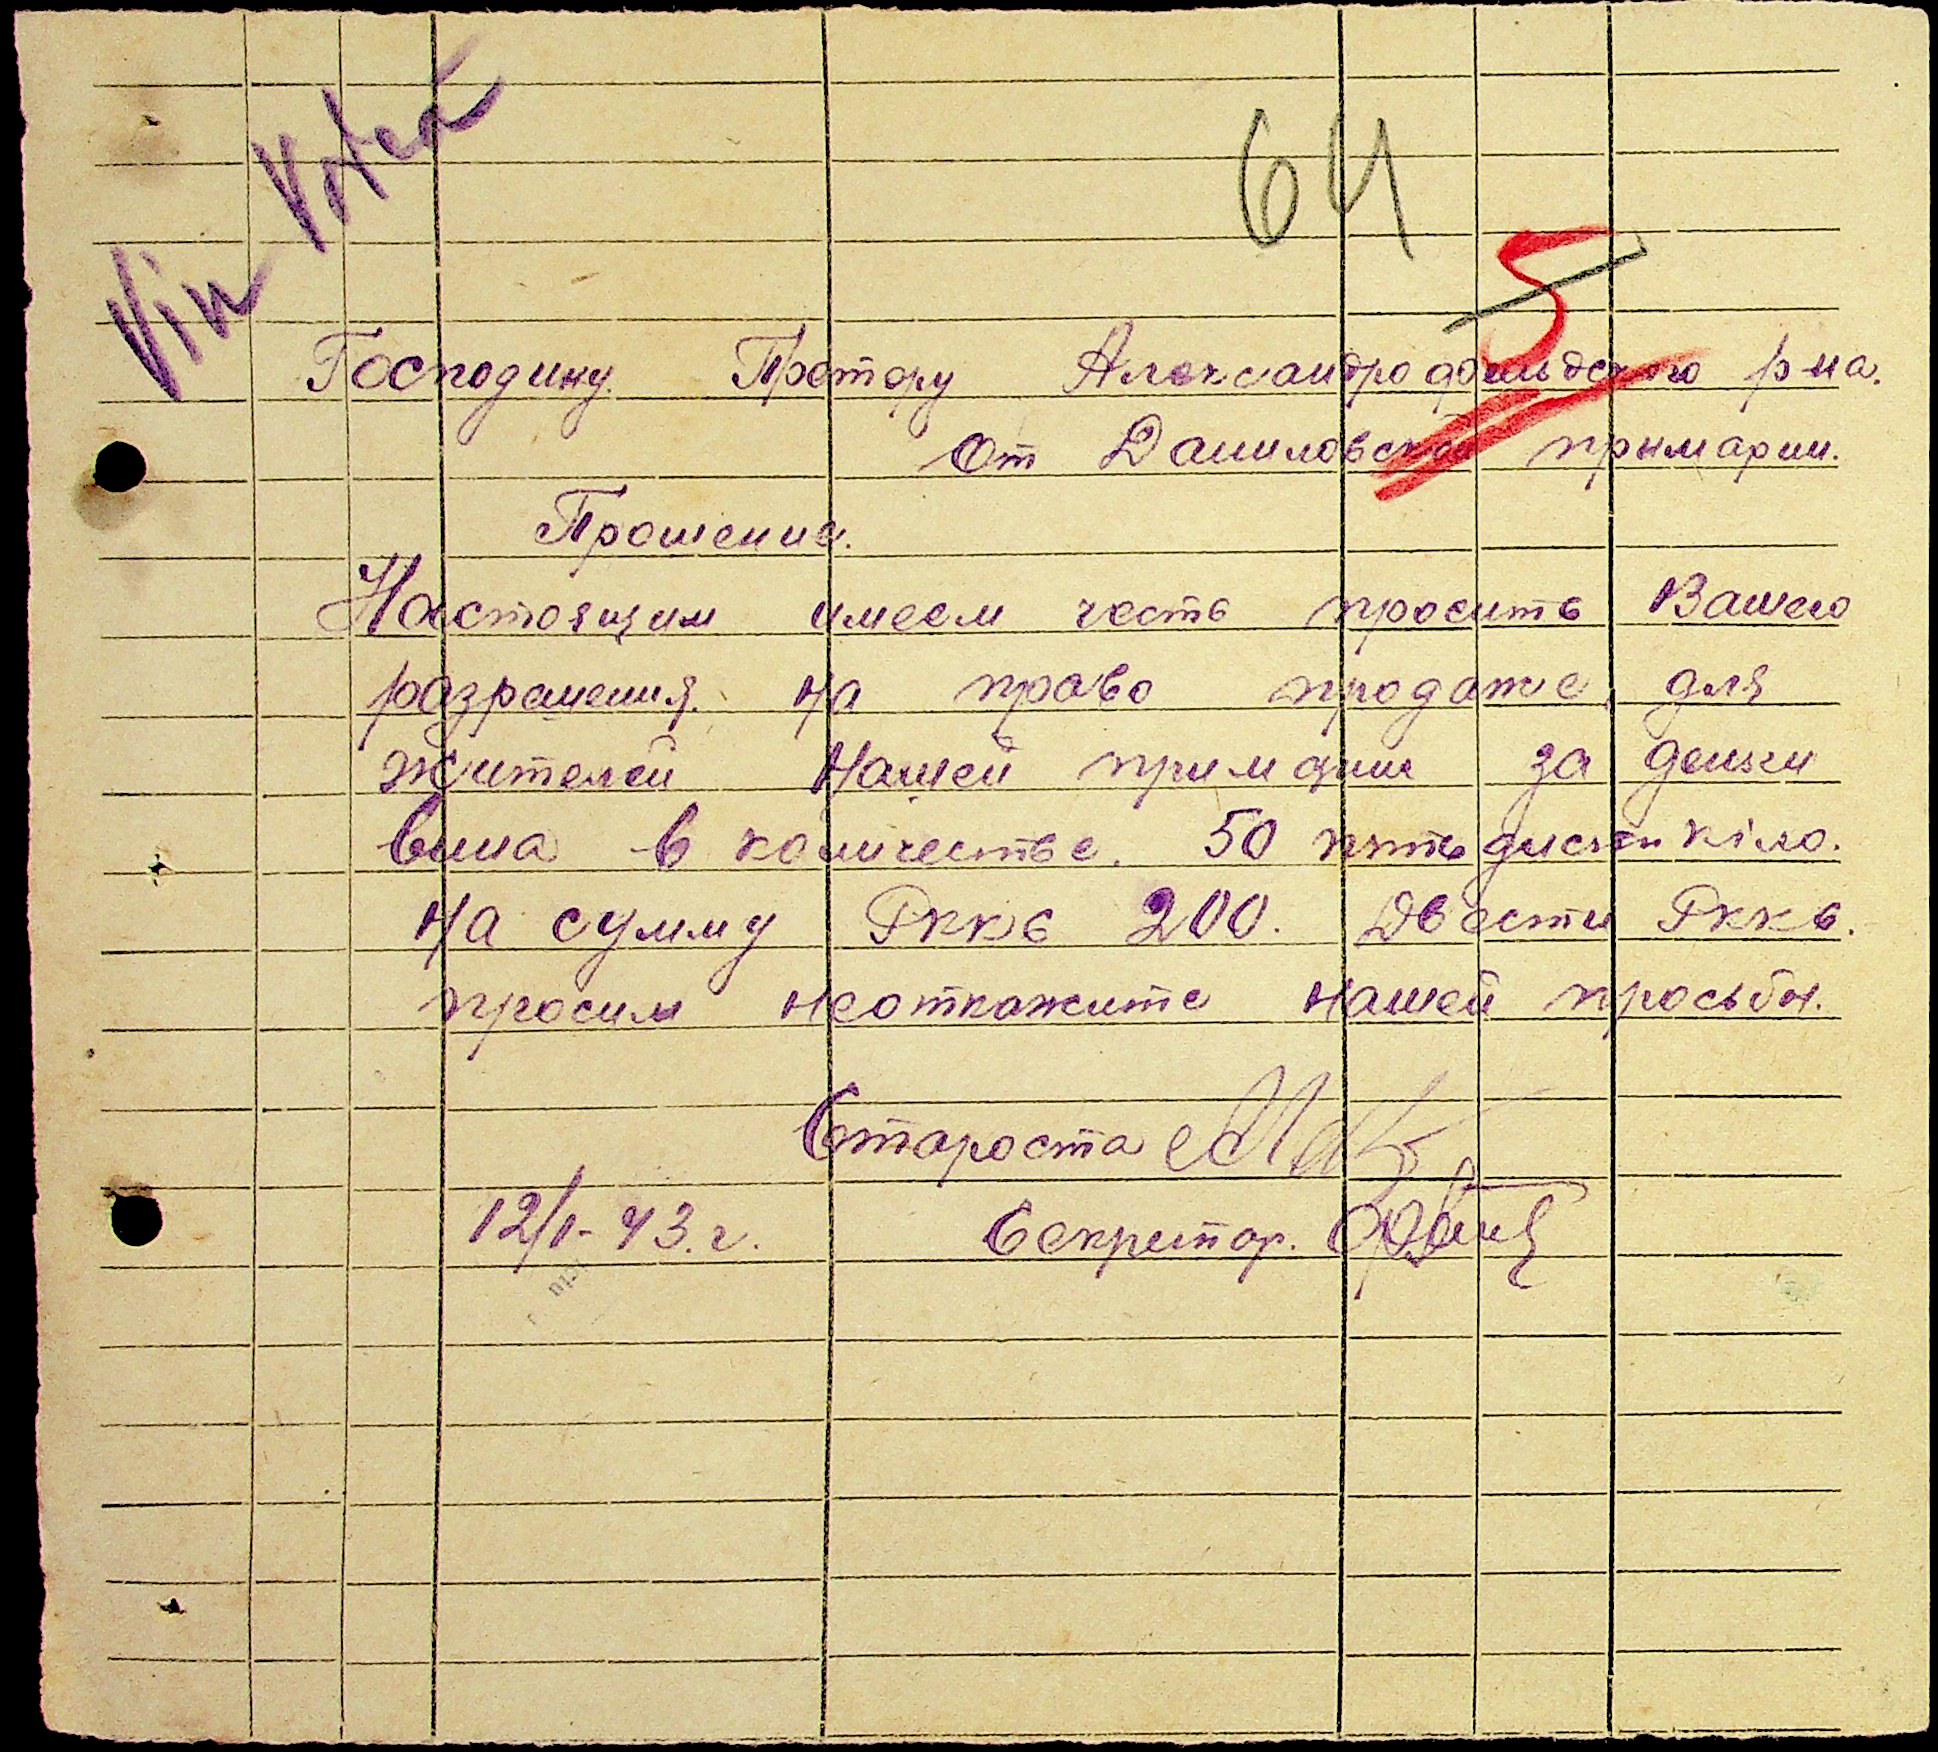 Vin Votca
64
5
Господину Претору Александродарльдского рна.
От Даниловской примарии.
Прошение.
Настоящим имеем честь просить Вашего
разрешения на право продаже для
жителей нашей примарии за деньги
вина в количестве. 50 пять дисяти кіло.
на сумму Рккс 200. Двести Рккс.
просим неоткажите нашей просьбы.
Староста
12/1-43.г. Секретар.